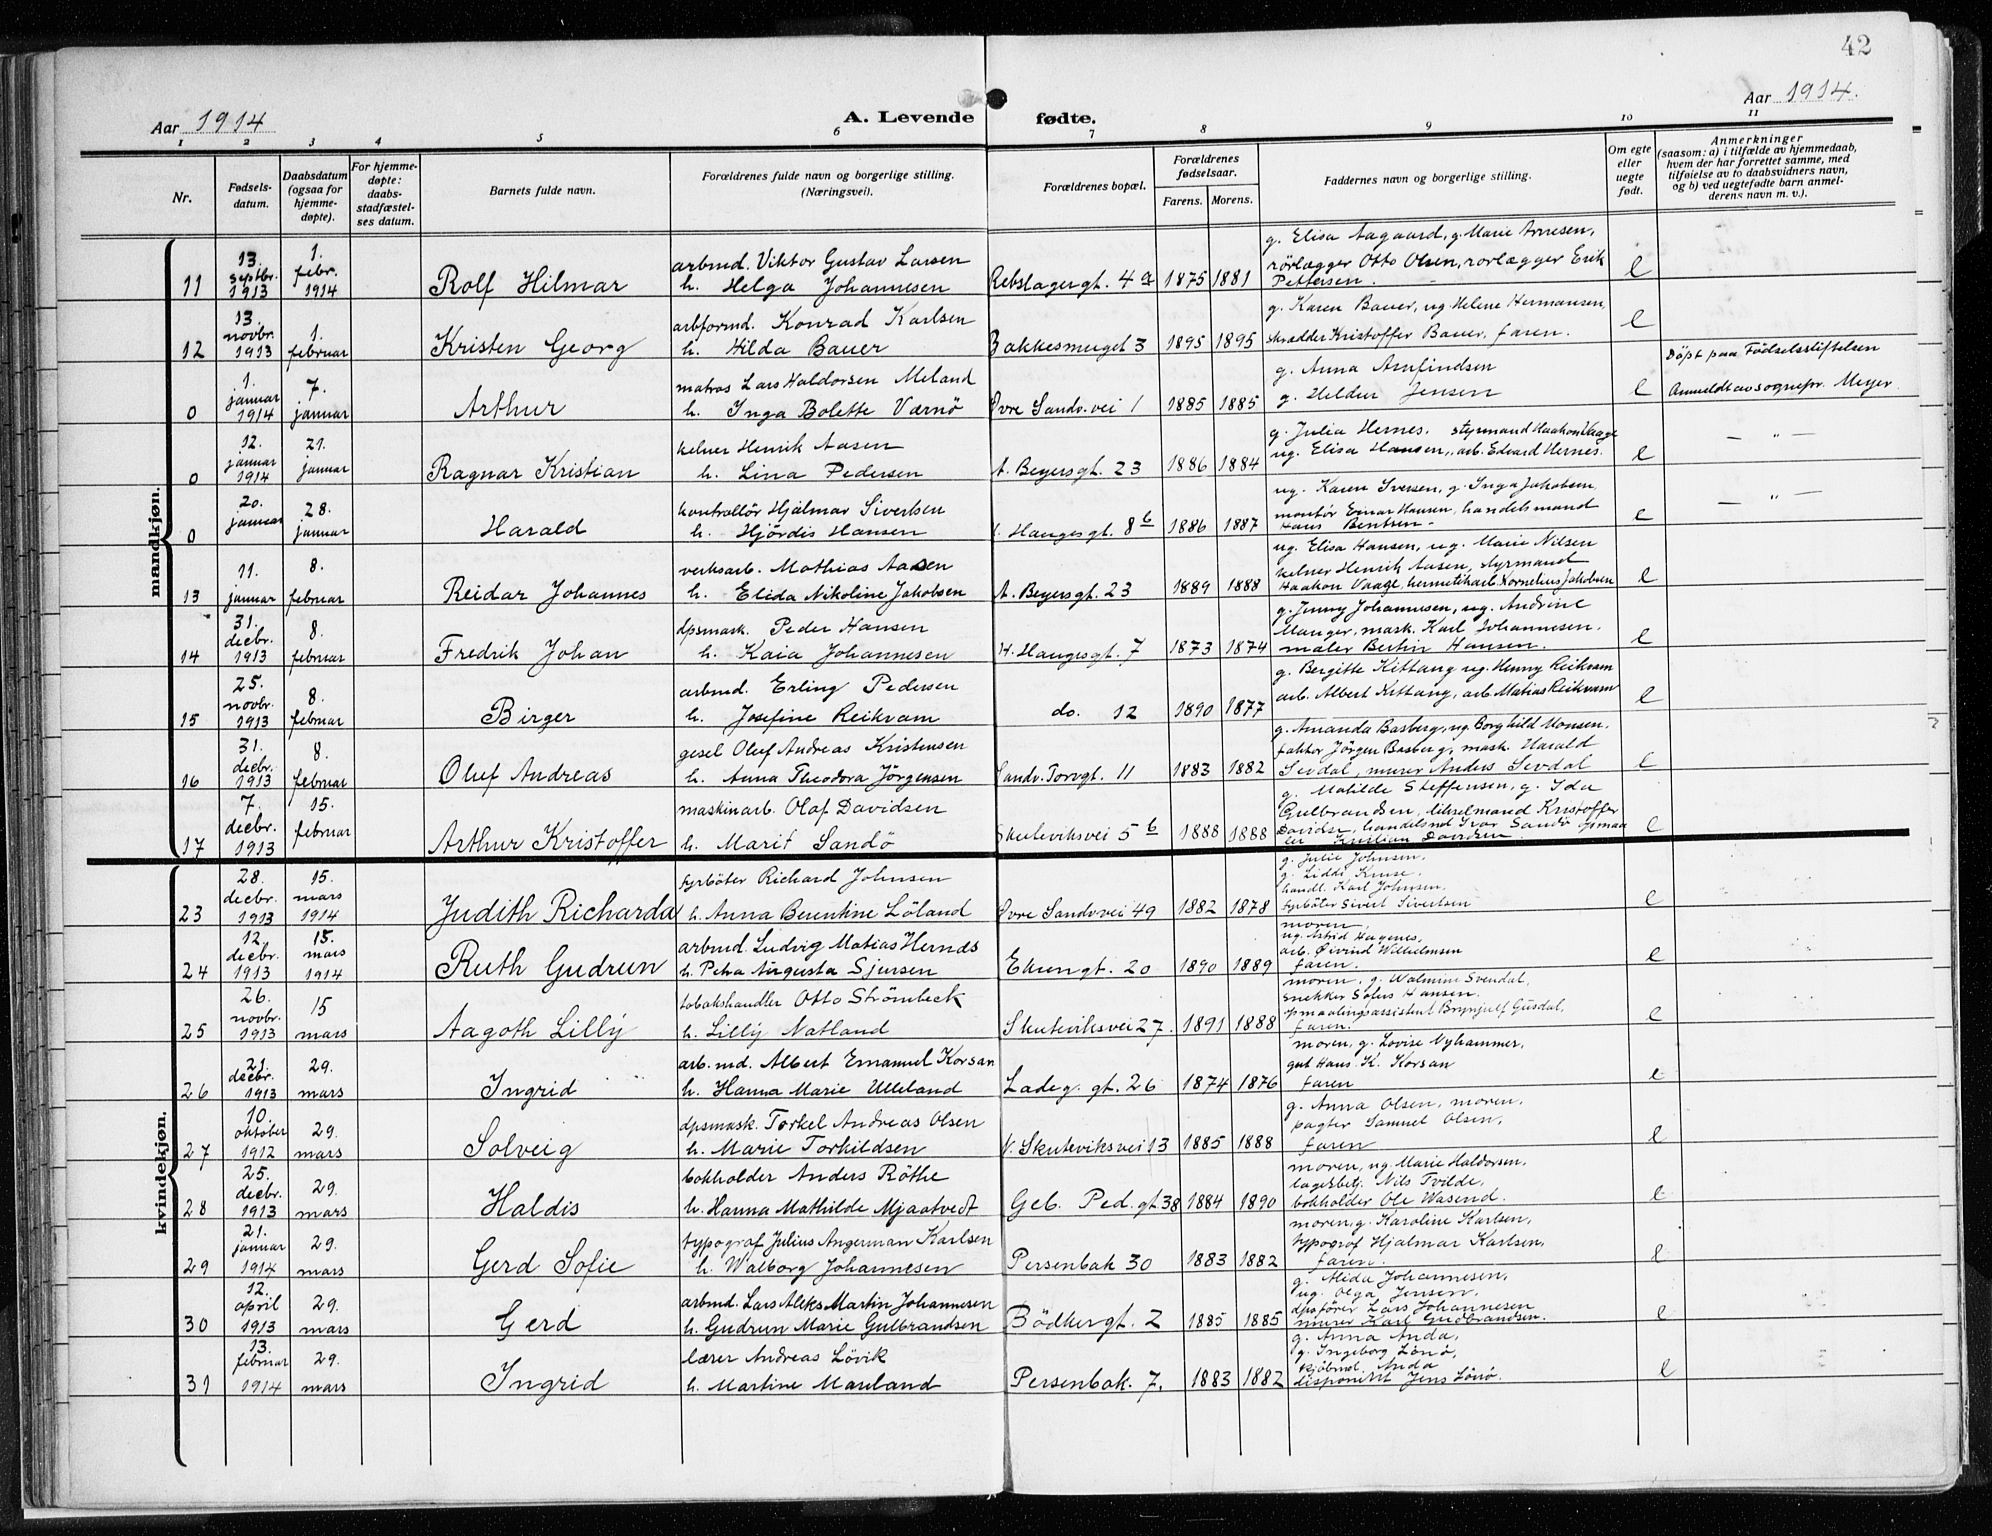 42
Aar 1914
A. Levende fødte.
Aar 1914.
1 2 3 4 5 6 7 8 9 10 11
Nr.
Fødsels-
datum.
Daabsdatum
(ogsaa for
hjemme-
døpte).
For hjemme-
døpte:
daabs-
stadfæstel-
ses datum.
Barnets fulde navn.
Forældrenes fulde navn og borgerlige stilling.
(Næringsvei).
Forældrenes bopæl.
Forældrenes
fødselsaar.
Farens. Morens.
Faddernes navn og borgerlige stilling.
Om egte
eller
uegte
født.
Anmerkninger
(saasom: a) i tilfælde av hjemmedaab,
hvem der har forrettet samme, med
tilføielse av to daabsvidners navn,
og b) ved uegtefødte barn anmel-
derens navn m. v.).
mandkjøn.
11
13.
septbr.
1913
1.
febr.
1914
Rolf Hilmar
arbmd. Viktor Gustav Larsen
h. Helga Johannesen
Rebslagergt. 4 a
1875 1881
g. Elisa Aagaard, g. Marie Arnesen,
rörlægger Otto Olsen, rorlægger Erik
Pettersen.
e
12
13.
novbr.
1913
1.
februar
Kristen Georg
arbformd. Konrad Karlsen
h. Hilda Bauer
Bakkesmuget 3
1895 1895
g. Karen Bauer, ug Helene Hermansen,
skrædder Kristoffer Bauer, faren.
e
0
1.
januar
1914
7.
januar
Arthur
matros Lars Haldorsen Meland
h. Inga Bolette Værnö
Øvre Sandv. vei 1
1885 1885
g. Anna Arnfindsen
g. Heldur Jensen
e
Döpt paa Födselsstiftelsen
Anmeldt av sognepr. Meyer
0
12.
januar
1914
21.
januar
Ragnar Kristian
kelner Henrik Aasen
h. Lina Pedersen
A. Beyersgt. 23
1886 1884
g. Julia Hernes. styrmand Haakon Vaage
ug. Elisa Hansen, arb. Edvard Hernes.
e
— „ —
0
20.
januar
28.
januar
Harald
kontrollör Hjalmar Sivertsen
h. Hjördis Hansen
H. Haugesgt. 8 b
1886 1887
ug. Karen Iversen, g. Inga Jakobsen,
montör Einar Hansen, handelsmand
Hans Bentsen
e
— „ —
13
11.
januar
8.
februar
Reidar Johannes
verksarb. Mathias Aasen
h. Elida Nikoline Jakobsen
A. Beyersgt. 23
1889 1888
ug. Elisa Hansen, ug. Marie Nilsen
kelner Henrik Aasen, styrmand
Haakon Vaage, hermetikarb. Kornelius Jakobsen
e
14
31.
decbr.
1913
8.
februar
Fredrik Johan
dpsmask. Peder Hansen
h. Kaia Johannesen
H. Haugesgt. 7
1873 1874
g. Jenny Johannesen, ug. Andrine
Manger, mask. Karl Johannesen.
maler Bertin Hansen.
e
15
25.
novbr.
1913
8.
februar
Birger
arbmd. Erling Pedersen
h. Josefine Reikvam
do. 12
1890 1877
g. Bergitte Kittang ug. Henny Reikvam
arb. Albert Kittang, arb. Matias Reikvam
e
16
31.
decbr.
1913
8.
februar
Oluf Andreas
gesel Oluf Andreas Kristensen
h. Anna Theodora Jörgensen
Sandv. Torvgt. 11
1883 1882
g. Amanda Basberg, ug. Borghild Monsen,
faktor Jörgen Basberg, mask. Harald
Sevdal, murer Anders Sevdal
e
17
7.
decbr.
1913
15.
februar
Arthur Kristoffer
maskinarb. Olaf Davidsen
h. Marit Sandö
Skuteviksvei 5 b
1888 1888
g. Matilde Steffensen, g. Ida
Gulbrandsen, Kristoffer
Davidsen, handelsmd Ivar Sandö
Kristian Davidsen
e
kvindekjøn.
23
28.
decbr.
1913
15.
mars
1914
Judith Richarda
fyrböter Richard Johnsen
h. Anna Berentine Löland
Øvre Sandv. vei 49
1882 1878
g. Julie Johnsen,
g. Liddi Kruse,
handl. Karl Johnsen,
fyrböter Sivert Sivertsen
e
24
12.
decbr.
1913
15.
mars
1914
Ruth Gudrun
arbmd. Ludvig Matias Hernes
h. Petra Augusta Sjursen
Ekrengt. 20
1890 1889
moren,
ug. Astrid Hagenes,
arb. Øivind Wilhelmsen
faren.
e
25
26.
novbr.
1913
15
mars
Aagoth Lilly
tobakshandler Otto Strömbeck
h. Lilly Natland
Skuteviksvei 27.
1891 1888
moren, g. Walmine Svendal,
snekker Sofus Hansen.
opmaalingsassistent Brynjulf Gusdal,
faren.
e
26
21.
decbr.
1913
29.
mars
Ingrid
arb. md. Albert Emanuel Korsan
h. Hanna Marie Ulleland
Ladeg. gt. 26
1874 1876
moren, g. Lovise Nyhammer,
gut Hans K. Korsan
faren
e
27
10.
oktober
1912
29.
mars
Solveig
dpsmask. Torkel Andreas Olsen
h. Marie Torkildsen
N. Skuteviksvei 13
1885 1888
g. Anna Olsen, moren,
pagter Samuel Olsen,
faren
e
28
25.
decbr.
1913
29.
mars
Haldis
bokholder Anders Röthe
h. Hanna Mathilde Mjaatvedt
Geb. Ped. gt. 38
1884 1890
moren, ug. Marie Haldorsen,
lagerbetj. Nils Tvilde,
bokholder Ole Wasend.
e
29
21.
januar
1914
29.
mars
Gerd Sofie
typograf Julius Angerman Karlsen
h. Walborg Johannesen
Persenbak 30
1883 1882
moren, g. Karoline Karlsen,
typograf Hjalmar Karlsen,
faren.
e
30
12.
april
1913
29.
mars
Gerd
arbmd. Lars Aleks Martin Johannesen
h. Gudrun Marie Gulbrandsen
Bödkergt. 2
1885 1885
g. Alida Johannesen,
ug. Olga Jensen,
dpsförer Lars Johannesen
murer Karl Gudbrandsen.
e
31
13.
februar
1914
29.
mars
Ingrid
lærer Andreas Lövik
h. Martine Mæland
Persenbak. 7.
1883 1882
g. Anna Anda,
g. Ingeborg Lönö,
kjöbmd. Anda
disponent Jens Lönö.
e